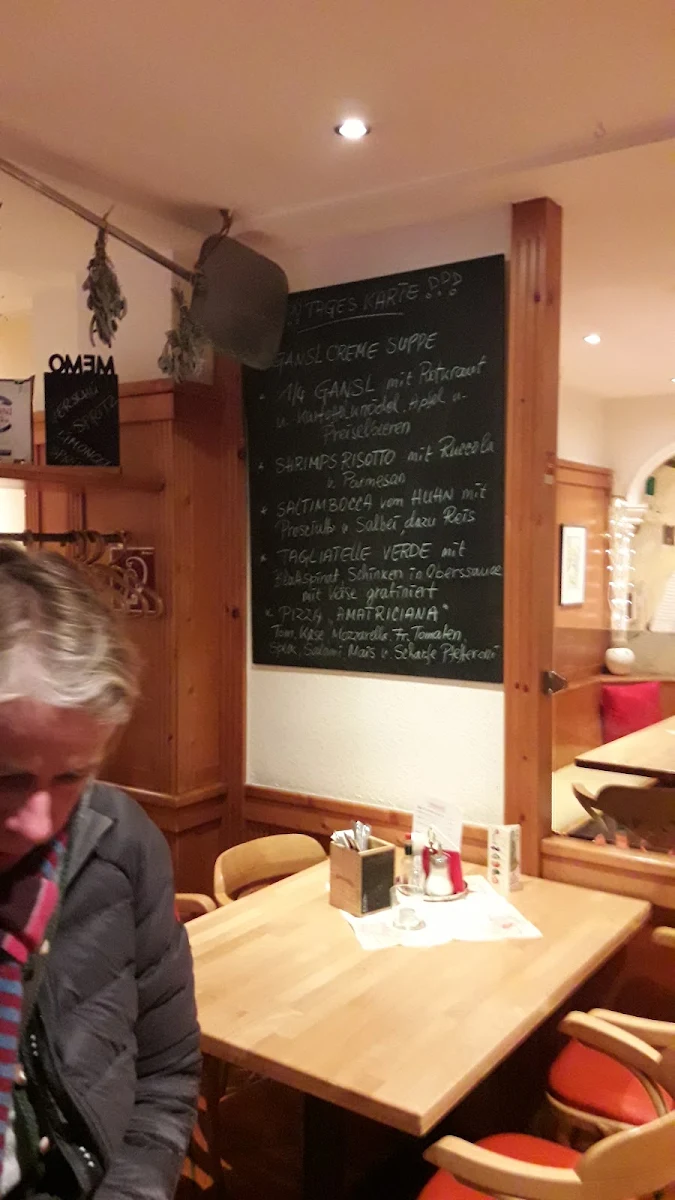 TAGES KARTE
GANSLCREME SUPPE
1/4 GANSL mit Rotkraut
u. Kartoffelknödel, Apfel u.
Preiselbeeren
SHRIMPS RISOTTO mit Ruccola
u. Parmesan
SALTIMBOCCA vom HUHN mit
Prosciutto u Salbei, dazu Reis
TAGLIATELLE VERDE mit
Blattspinat, Schinken in Oberssauce
mit Käse gratiniert
PIZZA „AMATRICIANA"
Tom, Käse, Mozzarella, Fr. Tomaten,
Speck, Salami, Mais u. Scharfe Pfefferoni
MEMO
SPRITZ